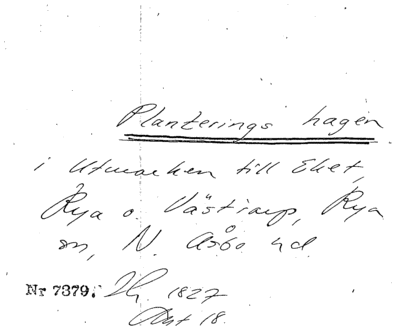 Planterings hagen
i Utmarken till Eket,
Rya o. Västraup, Rya
sn, N. Åsbo hd
Nr 7379. 1827
18.